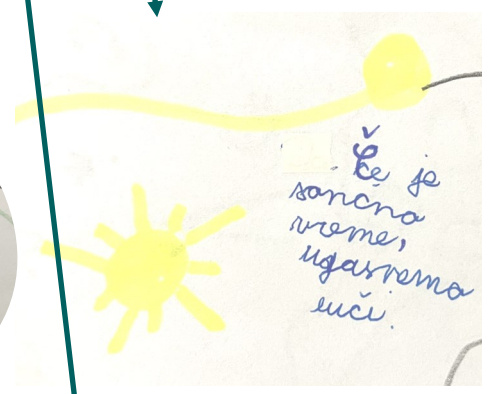 Če je
sončno
vreme,
ugasnemo
luči.